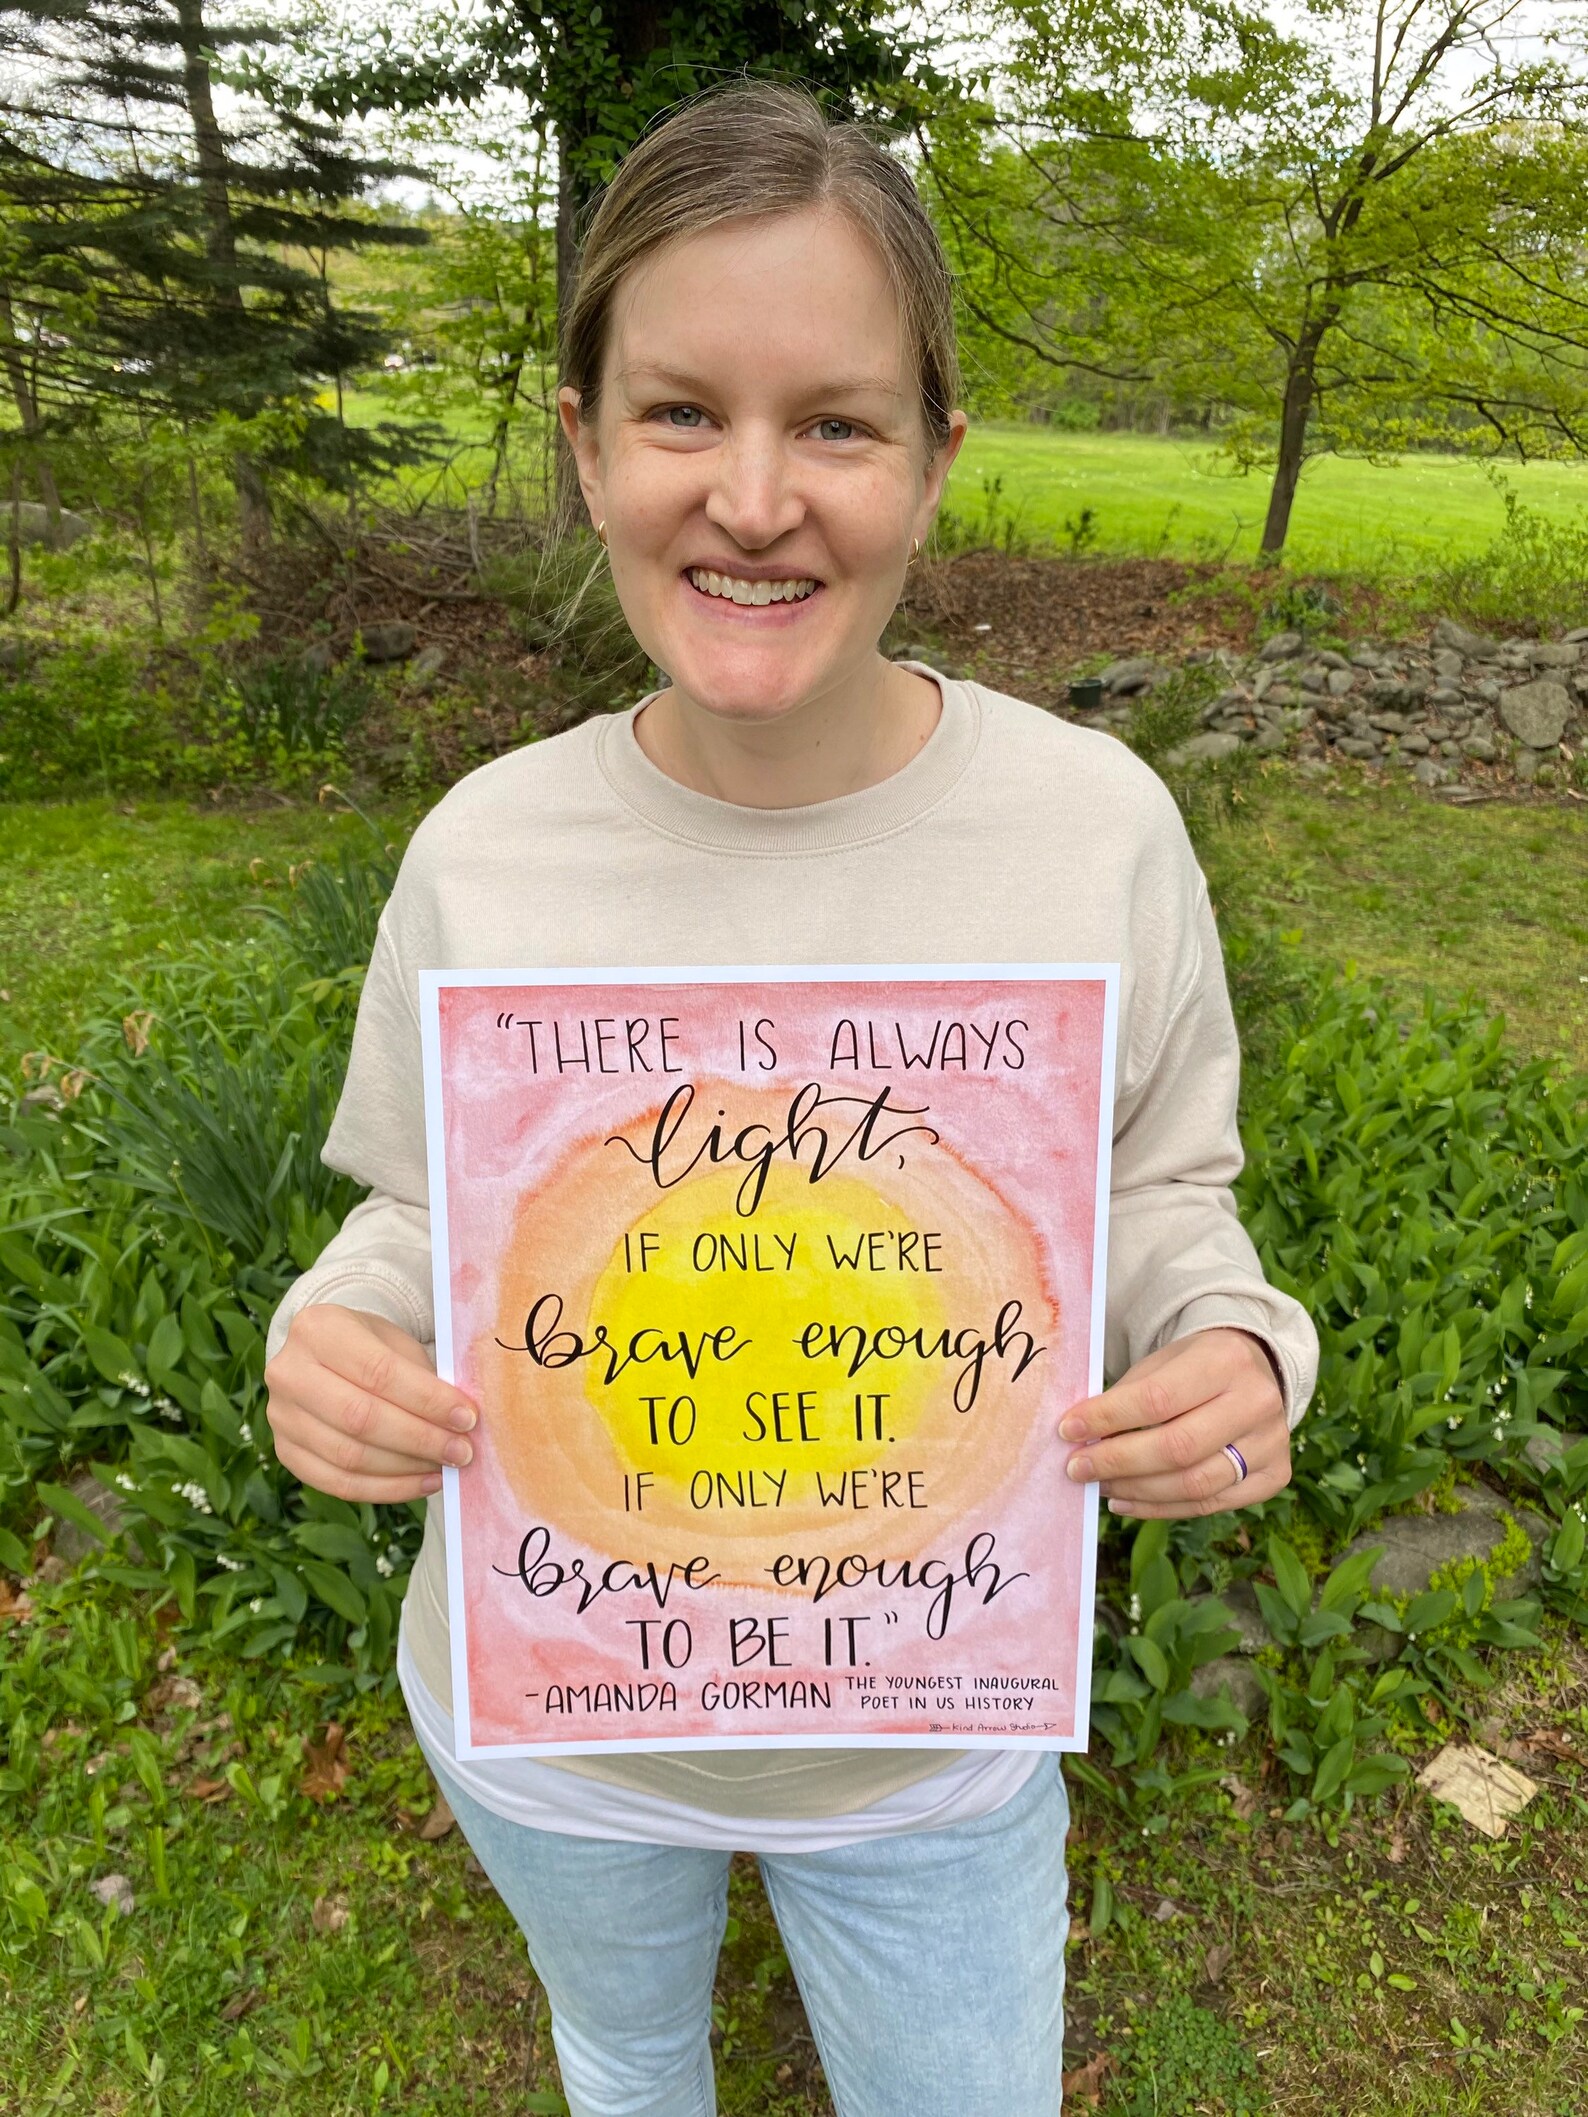 “THERE IS ALWAYS
light,
IF ONLY WE'RE
brave enough
TO SEE IT.
IF ONLY WE'RE
brave enough
TO BE IT.”
-AMANDA GORMAN THE YOUNGEST INAUGURAL
POET IN US HISTORY
Kind Arrow Studio